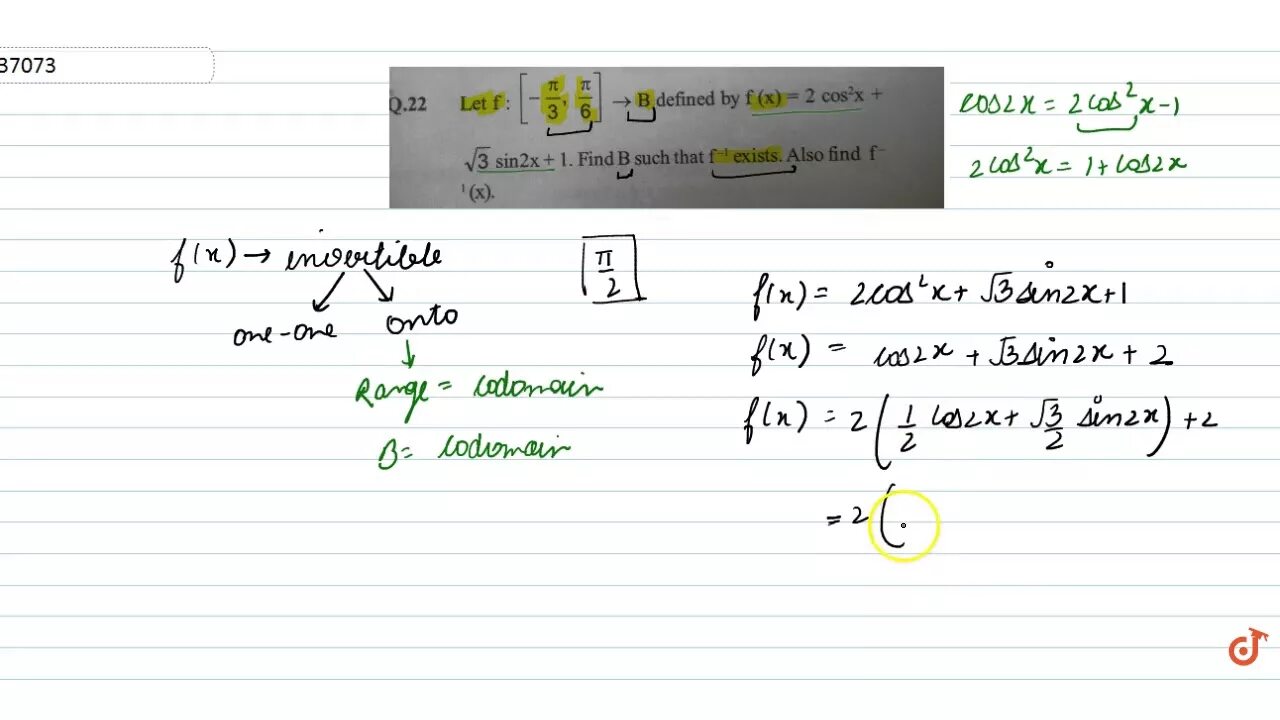 37073
Q.22 Let f : [-π/3, π/6] → B defined by f (x) = 2 cos²x +
√3 sin2x + 1. Find B such that f⁻¹ exists. Also find f⁻
¹(x).
cos2x = 2cos²x-1
2cos²x = 1+cos2x
f(x) → invertible
one-one onto
Range = codomain
B = codomain
π/2
f(x) = 2cos²x + √3 sin2x+1
f(x) = cos2x + √3 sin2x + 2
f(x) = 2(1/2 cos2x + √3/2 sin2x) + 2
= 2(